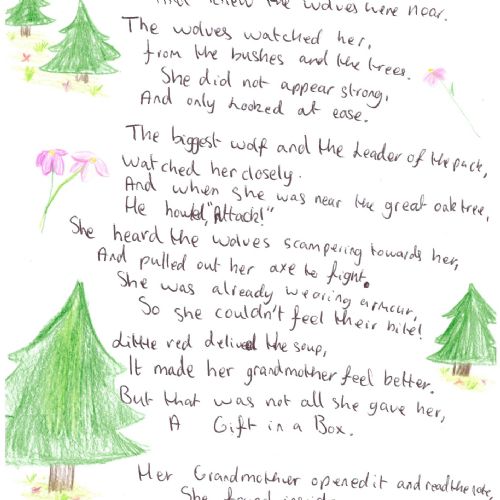 knew the wolves were near.
The wolves watched her,
from the bushes and the trees.
She did not appear strong,
And only looked at ease.
The biggest wolf and the Leader of the pack,
watched her closely.
And when she was near the great oak tree,
He howled, "Attack!"
She heard the wolves scampering towards her,
And pulled out her axe to fight.
She was already wearing armour,
So she couldn't feel their bite!
Little red delivered the soup,
It made her grandmother feel better.
But that was not all she gave her,
A Gift in a Box.
Her Grandmother opened it and read the note,
She found inside